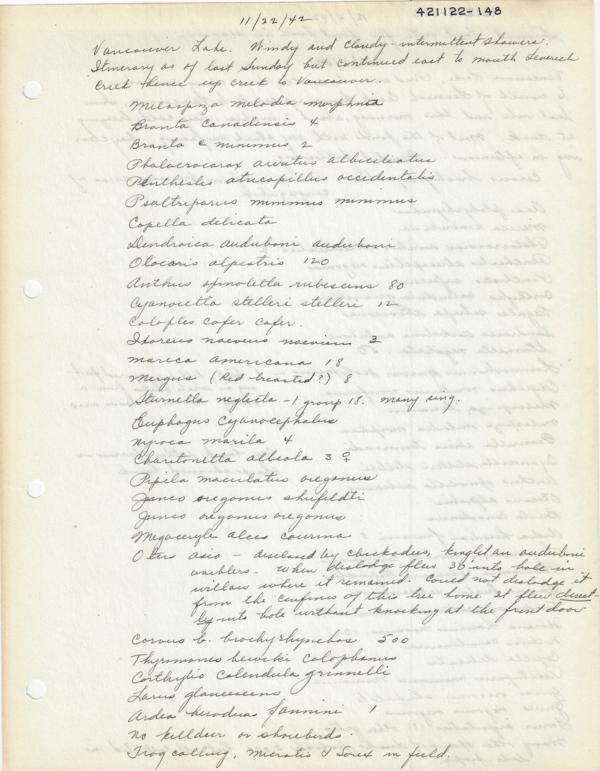 11/22/42
421122-148
Vancouver Lake. Windy and Cloudy - intermittent showers.
Itinerary as of last Sunday but continued east to mouth
Creek thence up creek to Vancouver.
Melospiza melodia morphnia
Branta canadensis 4
Branta c minimus 2
Phalacrocorax auritus albiciliatus
Penthestes atricapillus occidentalis
Psaltriparus minimus minimus
Capella delicata
Dendroica auduboni auduboni
Otocoris alpestris 120
Anthus spinoletta rubescens 80
Cyanocitta stelleri stelleri 12
Colaptes cafer cafer.
Ixoreus naevius naevius 3
Mareca americana 18
Mergus (Red breasted?) 8
Sturnella neglecta - 1 group 18. Many sing.
Euphagus Cyanocephalus
Nyroca marila 4
Charitonetta albeola 3 ♀
Pipilo maculatus oregonus
Junco oregonus shufeldti
Junco oregonus oregonus
Megaceryle alcyon caurina
Otus asio - disclosed by chickadees, kinglet an auduboni
warblers. When dislodge flew 30' into hole in
willow where it remained. Could not dislodge it
from the confines of this tree home. It flew direct-
ly into hole without knocking at the front door
Corvus b. brachyrhynchos 500
Thyromanes bewicki calophonus
Corthylio calendula grinnelli
Larus glaucescens
Ardea herodias fannini 1
No killdeer or shorebirds.
Frog calling, Microtis & Sorex in field.